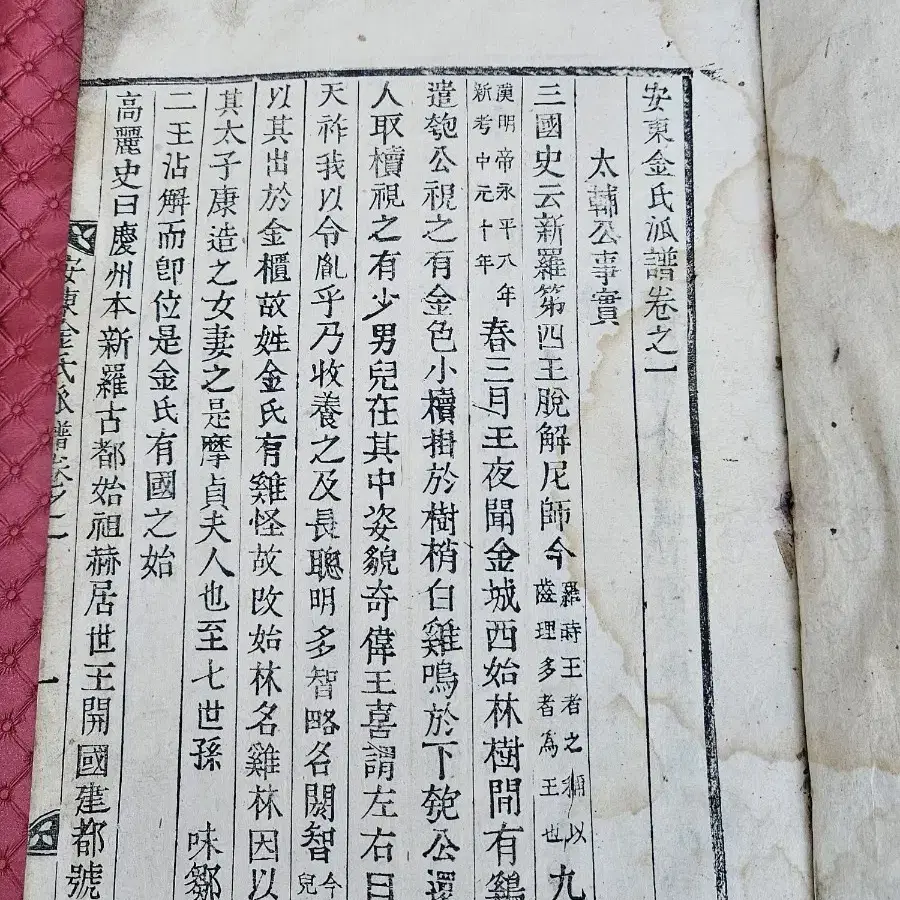 安東金氏泒譜卷之一
太輔公事實
三國史云新羅第四王脫解尼師今羅時王者之稱以齒理多者為王也九
漢明帝永平八年新考中元十年春三月王夜聞金城西始林樹間有鷄
遣匏公視之有金色小櫝掛於樹梢白雞鳴於下匏公還
人取櫝視之有少男兒在其中姿貌奇偉王喜謂左右曰
天祚我以令胤乎乃收養之及長聰明多智略名閼智今兒
以其出於金櫃故姓金氏有雞怪故改始林名雞林因以
其太子康造之女妻之是摩貞夫人也至七世孫 味鄒
二王沾解而卽位是金氏有國之始
高麗史曰慶州本新羅古都始祖赫居世王開國建都號
安東金氏泒譜卷之一 一